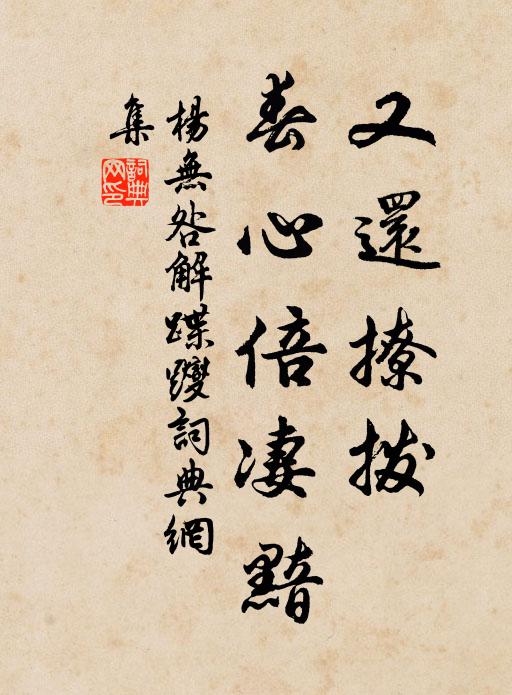 又還撩拨
春心倍凄黯
楊無咎解蹀躞詞典網
集
詞典网印